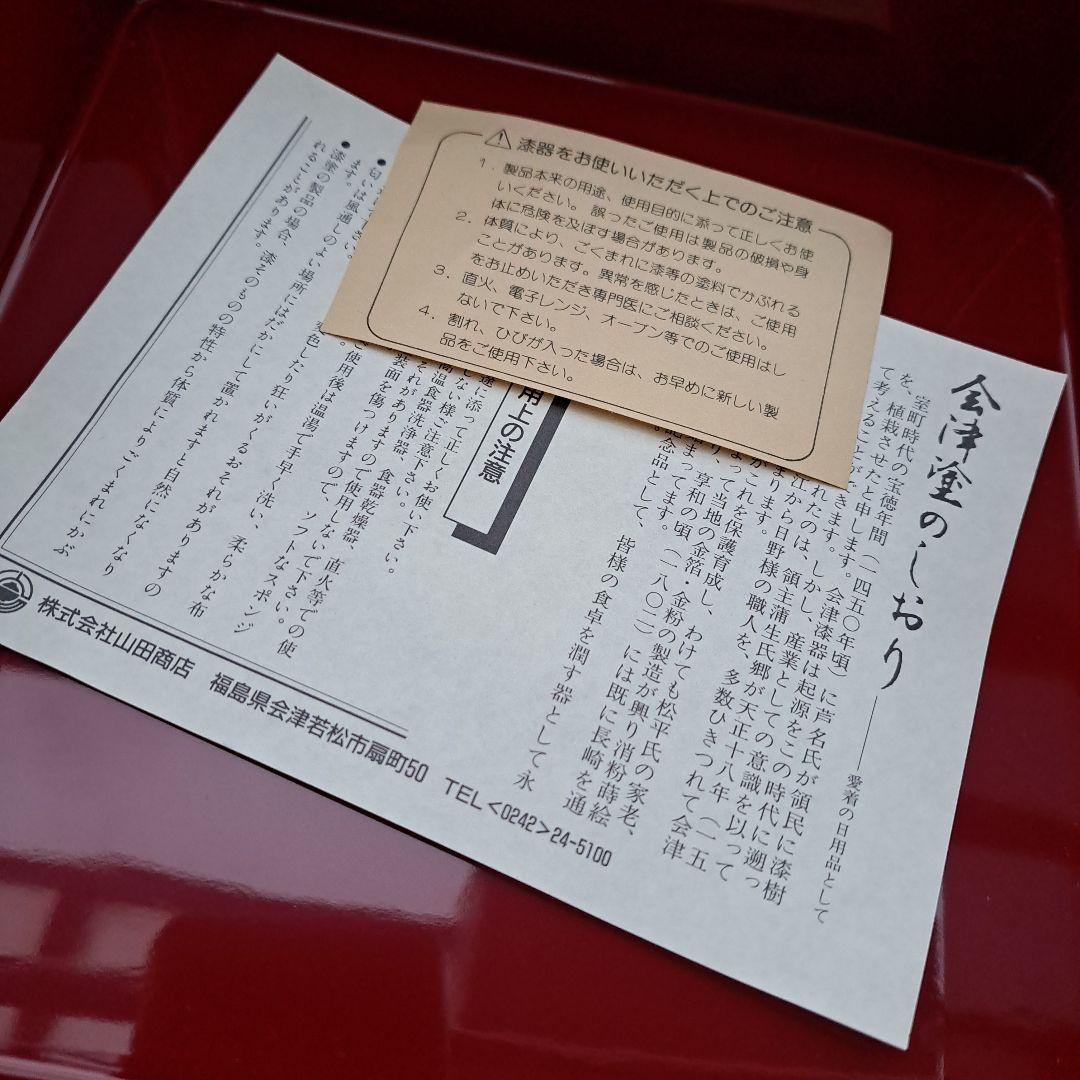 ⚠ 漆器をお使いいただく上でのご注意
1. 製品本来の用途、使用目的に添って正しくお使
いください。誤ったご使用は製品の破損や身
体に危険を及ぼす場合があります。
2. 体質により、ごくまれに漆等の塗料でかぶれる
ことがあります。異常を感じたときは、ご使用
をお止めいただき専門医にご相談ください。
3. 直火、電子レンジ、オーブン等でのご使用はし
ないで下さい。
4. 割れ、ひびが入った場合は、お早めに新しい製
品をご使用下さい。
会津塗のしおり
愛着の日用品として
室町時代の宝徳年間(一四五〇年頃)に芦名氏が領民に漆樹
を、植栽させたと申します。会津漆器は起源をこの時代に遡っ
て考えることができます。しかし、産業としての意識を以って
れたのは、領主蒲生氏郷が天正十八年(一五
江から日野様の職人を、多数ひきつれて会津
ります。
これを保護育成し、わけても松平氏の家老、
よって当地の金箔・金粉の製造が興り消粉蒔絵
り、享和の頃(一八〇二)には既に長崎を通
まってます。
念品として、皆様の食卓を潤す器として永
用上の注意
途に添って正しくお使い下さい。
ない様ご注意下さい。
高温食器洗浄器、食器乾燥器、直火等での使
それがありますので使用しないで下さい。
装面を傷つけますので、ソフトなスポンジ
使用後は温湯で手早く洗い、柔らかな布
変色したり狂いがくるおそれがあります。
匂いは風通しのよい場所にはだかにして置かれますと自然になくなり
ます。
●漆塗の製品の場合、漆そのものの特性から体質によりごくまれにかぶ
れることがあります。
株式会社山田商店 福島県会津若松市扇町50 TEL<0242>24-5100